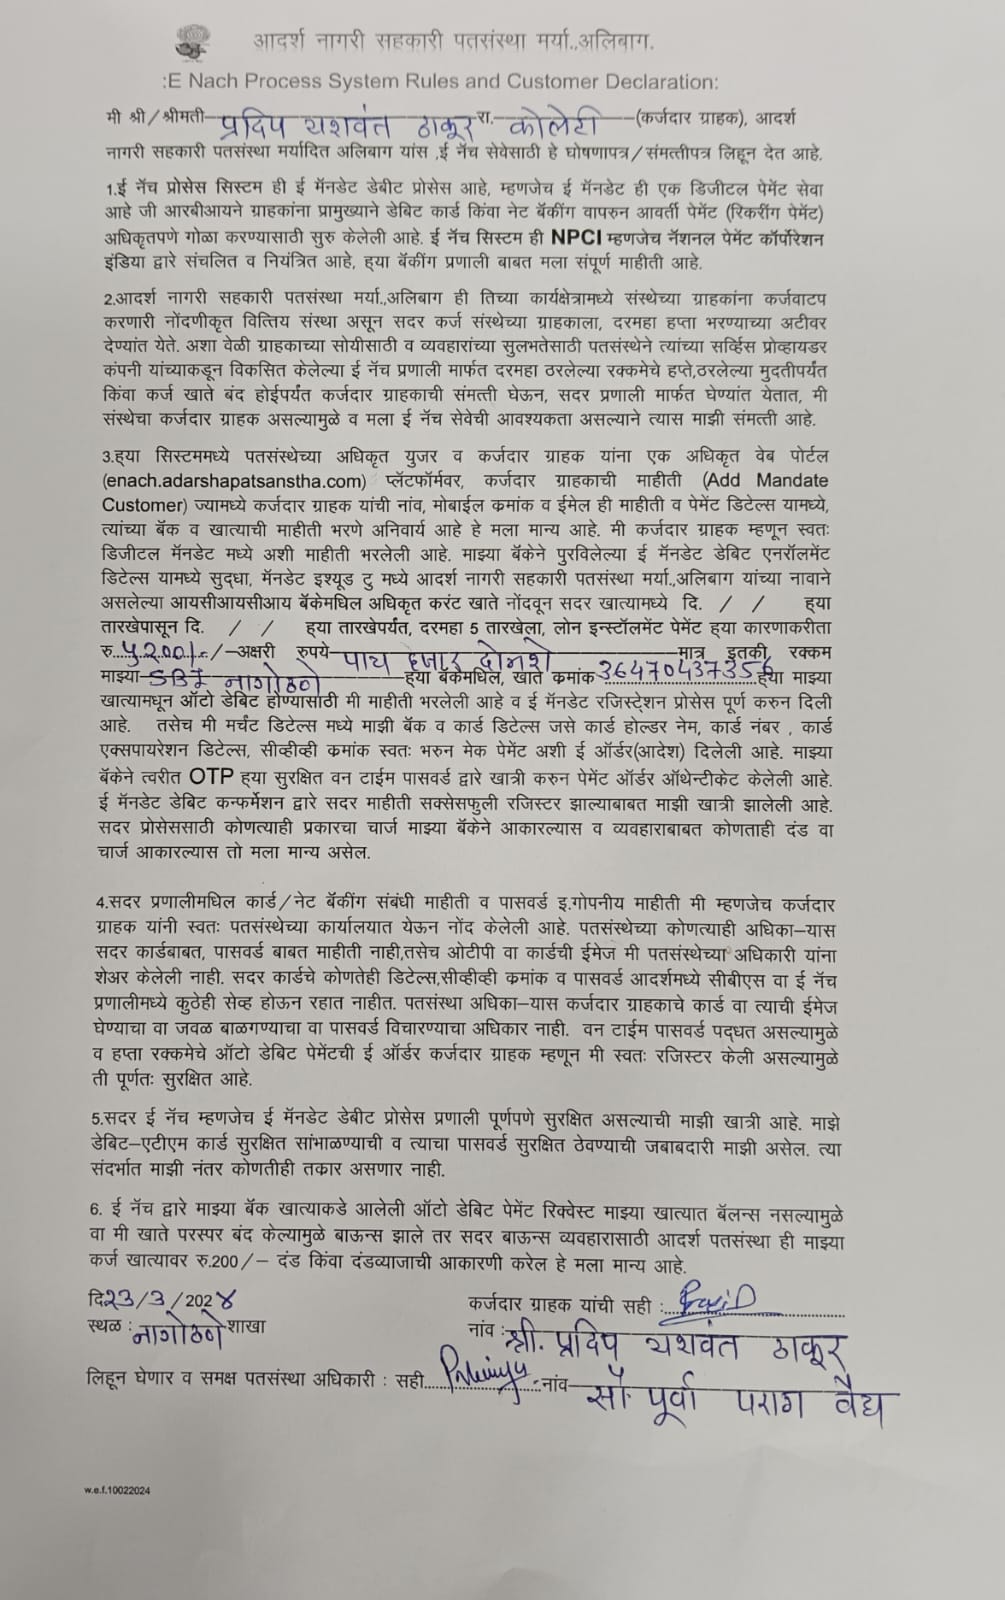 आदर्श नागरी सहकारी पतसंस्था मर्या.,अलिबाग.
:E Nach Process System Rules and Customer Declaration:
मी श्री/श्रीमती प्रदिप यशवंत ठाकूर रा. कोलेटी (कर्जदार ग्राहक), आदर्श
नागरी सहकारी पतसंस्था मर्यादित अलिबाग यांस ,ई नॅच सेवेसाठी हे घोषणापत्र/संमत्तीपत्र लिहून देत आहे.
1.ई नॅच प्रोसेस सिस्टम ही ई मॅनडेट डेबीट प्रोसेस आहे, म्हणजेच ई मॅनडेट ही एक डिजीटल पेमेंट सेवा
आहे जी आरबीआयने ग्राहकांना प्रामुख्याने डेबिट कार्ड किंवा नेट बॅकींग वापरुन आवर्ती पेमेंट (रिकरींग पेमेंट)
अधिकृतपणे गोळा करण्यासाठी सुरु केलेली आहे. ई नॅच सिस्टम ही NPCI म्हणजेच नॅशनल पेमेंट कॉर्पोरेशन
इंडिया द्वारे संचलित व नियंत्रित आहे, ह्या बॅकींग प्रणाली बाबत मला संपूर्ण माहीती आहे.
2.आदर्श नागरी सहकारी पतसंस्था मर्या.,अलिबाग ही तिच्या कार्यक्षेत्रामध्ये संस्थेच्या ग्राहकांना कर्जवाटप
करणारी नोंदणीकृत वित्तिय संस्था असून सदर कर्ज संस्थेच्या ग्राहकाला, दरमहा हप्ता भरण्याच्या अटीवर
देण्यांत येते. अशा वेळी ग्राहकाच्या सोयीसाठी व व्यवहारांच्या सुलभतेसाठी पतसंस्थेने त्यांच्या सर्व्हिस प्रोव्हायडर
कंपनी यांच्याकडून विकसित केलेल्या ई नॅच प्रणाली मार्फत दरमहा ठरलेल्या रक्कमेचे हप्ते,ठरलेल्या मुदतीपर्यंत
किंवा कर्ज खाते बंद होईपर्यंत कर्जदार ग्राहकाची संमत्ती घेऊन, सदर प्रणाली मार्फत घेण्यांत येतात, मी
संस्थेचा कर्जदार ग्राहक असल्यामुळे व मला ई नॅच सेवेची आवश्यकता असल्याने त्यास माझी संमत्ती आहे.
3.ह्या सिस्टममध्ये पतसंस्थेच्या अधिकृत युजर व कर्जदार ग्राहक यांना एक अधिकृत वेब पोर्टल
(enach.adarshapatsanstha.com) प्लॅटफॉर्मवर, कर्जदार ग्राहकाची माहीती (Add Mandate
Customer) ज्यामध्ये कर्जदार ग्राहक यांची नांव, मोबाईल क्रमांक व ईमेल ही माहीती व पेमेंट डिटेल्स यामध्ये,
त्यांच्या बॅक व खात्याची माहीती भरणे अनिवार्य आहे हे मला मान्य आहे. मी कर्जदार ग्राहक म्हणून स्वतः
डिजीटल मॅनडेट मध्ये अशी माहीती भरलेली आहे. माझ्या बॅकेने पुरविलेल्या ई मॅनडेट डेबिट एनरॉलमेंट
डिटेल्स यामध्ये सुद्धा, मॅनडेट इश्यूड टु मध्ये आदर्श नागरी सहकारी पतसंस्था मर्या.,अलिबाग यांच्या नावाने
असलेल्या आयसीआयसीआय बॅकेमधिल अधिकृत करंट खाते नोंदवून सदर खात्यामध्ये दि. / / ह्या
तारखेपासून दि. / / ह्या तारखेपर्यंत, दरमहा 5 तारखेला, लोन इन्स्टॉलमेंट पेमेंट ह्या कारणाकरीता
रु. ५२००/- /-अक्षरी रुपये पाच हजार दोनशे मात्र इतकी रक्कम
माझ्या SBI नागोठणे ह्या बॅकेमधिल, खाते क्रमांक 36470437356 ह्या माझ्या
खात्यामधून ऑटो डेबिट होण्यासाठी मी माहीती भरलेली आहे व ई मॅनडेट रजिस्ट्रेशन प्रोसेस पूर्ण करुन दिली
आहे. तसेच मी मर्चंट डिटेल्स मध्ये माझी बॅक व कार्ड डिटेल्स जसे कार्ड होल्डर नेम, कार्ड नंबर , कार्ड
एक्सपायरेशन डिटेल्स, सीव्हीव्ही क्रमांक स्वतः भरुन मेक पेमेंट अशी ई ऑर्डर(आदेश) दिलेली आहे. माझ्या
बॅकेने त्वरीत OTP ह्या सुरक्षित वन टाईम पासवर्ड द्वारे खात्री करुन पेमेंट ऑर्डर ऑथेन्टीकेट केलेली आहे.
ई मॅनडेट डेबिट कन्फर्मेशन द्वारे सदर माहीती सक्सेसफुली रजिस्टर झाल्याबाबत माझी खात्री झालेली आहे.
सदर प्रोसेससाठी कोणत्याही प्रकारचा चार्ज माझ्या बॅकेने आकारल्यास व व्यवहाराबाबत कोणताही दंड वा
चार्ज आकारल्यास तो मला मान्य असेल.
4.सदर प्रणालीमधिल कार्ड/नेट बॅकींग संबंधी माहीती व पासवर्ड इ.गोपनीय माहीती मी म्हणजेच कर्जदार
ग्राहक यांनी स्वतः पतसंस्थेच्या कार्यालयात येऊन नोंद केलेली आहे. पतसंस्थेच्या कोणत्याही अधिका–यास
सदर कार्डबाबत, पासवर्ड बाबत माहीती नाही,तसेच ओटीपी वा कार्डची ईमेज मी पतसंस्थेच्या अधिकारी यांना
शेअर केलेली नाही. सदर कार्डचे कोणतेही डिटेल्स,सीव्हीव्ही क्रमांक व पासवर्ड आदर्शमध्ये सीबीएस वा ई नॅच
प्रणालीमध्ये कुठेही सेव्ह होऊन रहात नाहीत. पतसंस्था अधिका–यास कर्जदार ग्राहकाचे कार्ड वा त्याची ईमेज
घेण्याचा वा जवळ बाळगण्याचा वा पासवर्ड विचारण्याचा अधिकार नाही. वन टाईम पासवर्ड पद्धत असल्यामुळे
व हप्ता रक्कमेचे ऑटो डेबिट पेमेंटची ई ऑर्डर कर्जदार ग्राहक म्हणून मी स्वतः रजिस्टर केली असल्यामुळे
ती पूर्णतः सुरक्षित आहे.
5.सदर ई नॅच म्हणजेच ई मॅनडेट डेबीट प्रोसेस प्रणाली पूर्णपणे सुरक्षित असल्याची माझी खात्री आहे. माझे
डेबिट–एटीएम कार्ड सुरक्षित सांभाळण्याची व त्याचा पासवर्ड सुरक्षित ठेवण्याची जबाबदारी माझी असेल. त्या
संदर्भात माझी नंतर कोणतीही तक्रार असणार नाही.
6. ई नॅच द्वारे माझ्या बॅक खात्याकडे आलेली ऑटो डेबिट पेमेंट रिक्वेस्ट माझ्या खात्यात बॅलन्स नसल्यामुळे
वा मी खाते परस्पर बंद केल्यामुळे बाऊन्स झाले तर सदर बाऊन्स व्यवहारासाठी आदर्श पतसंस्था ही माझ्या
कर्ज खात्यावर रु.200/– दंड किंवा दंडव्याजाची आकारणी करेल हे मला मान्य आहे.
दि २३/3/202४ कर्जदार ग्राहक यांची सही :
स्थळ : नागोठणे शाखा नांव : श्री. प्रदिप यशवंत ठाकूर
लिहून घेणार व समक्ष पतसंस्था अधिकारी : सही नांव सौ. पूर्वा पराग वैद्य
w.e.f.10022024